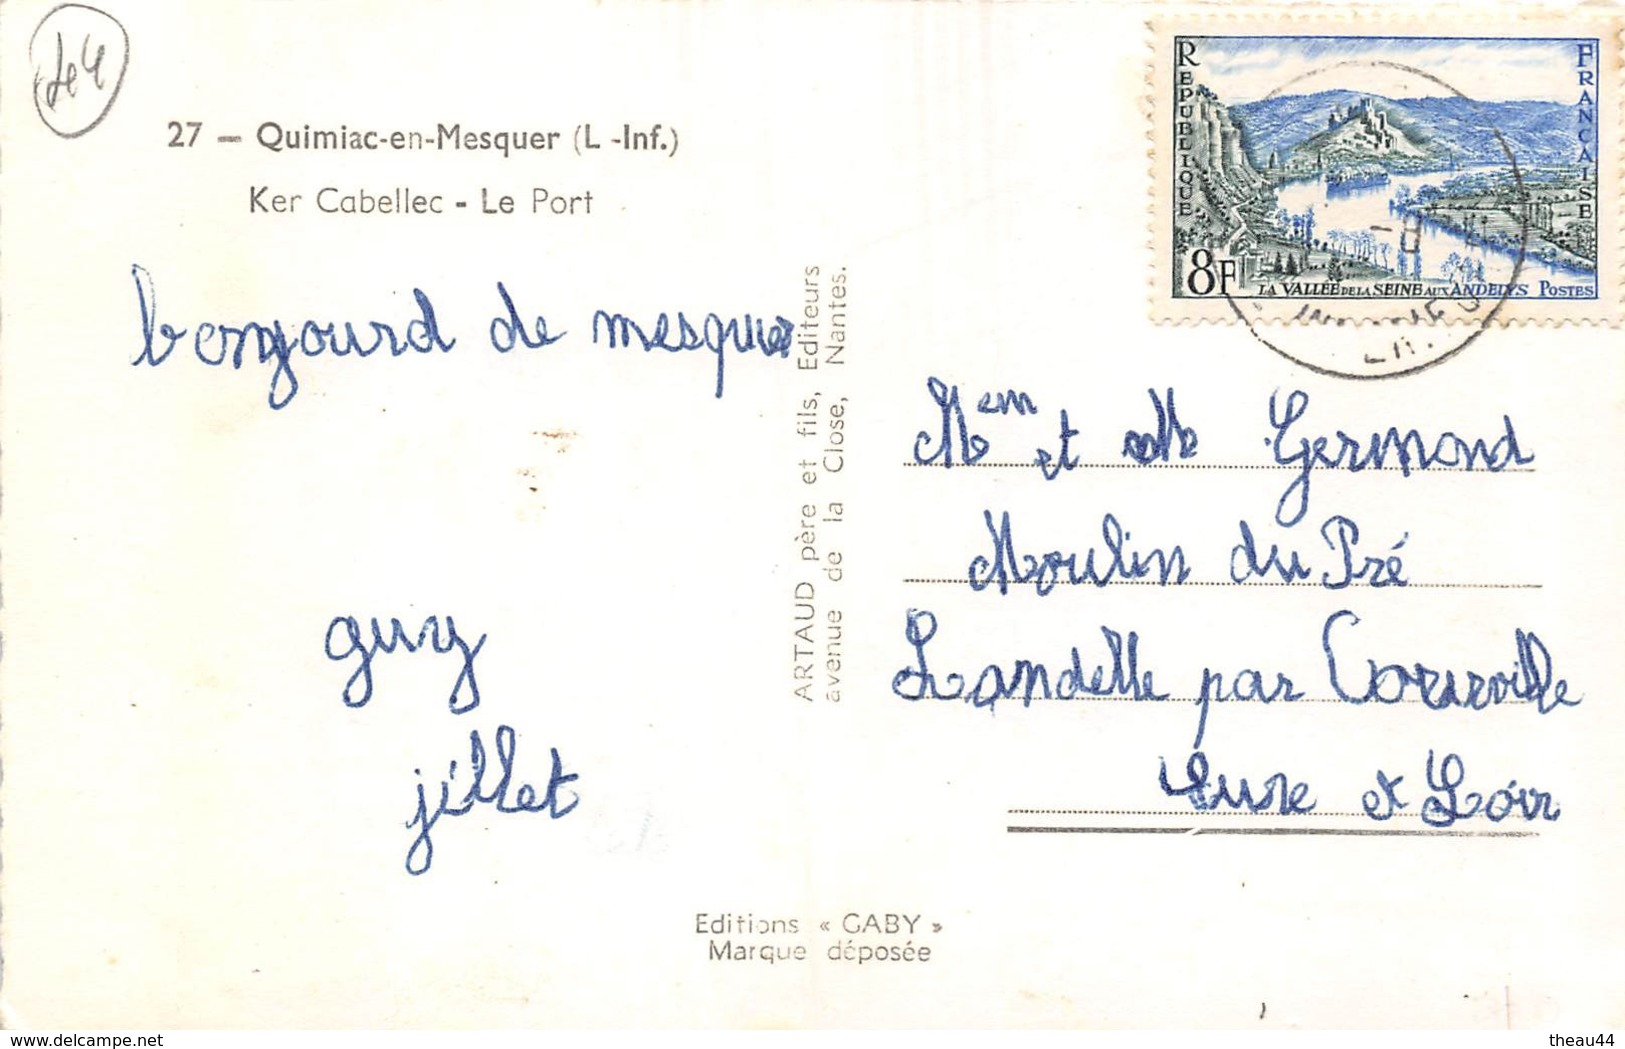 44
27 — Quimiac-en-Mesquer (L -Inf.)
Ker Cabellec - Le Port
bonjourd de mesquer
guy
jillet
ARTAUD père et fils, Editeurs
avenue de la Close, Nantes.
Editions « GABY »
Marque déposée
REPUBLIQUE
FRANCAISE
8F
LA VALLÉE DE LA SEINE AUX ANDELYS POSTES
Mem et M Germond
Moulin du Pré
Landelle par Courville
Eure et Loir
www.delcampe.net
theau44